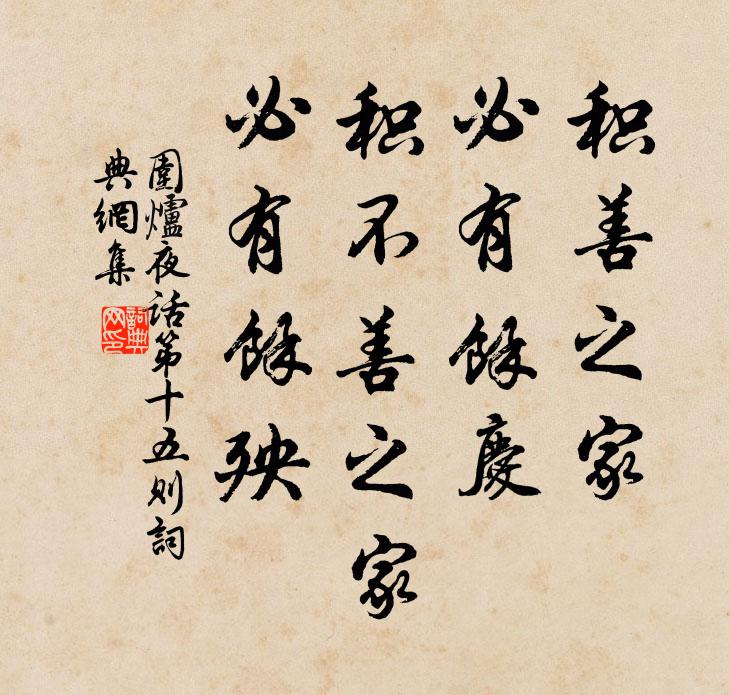 积善之家
必有馀慶
积不善之家
必有馀殃
圍爐夜话第十五则詞
典網集
詞典
网印